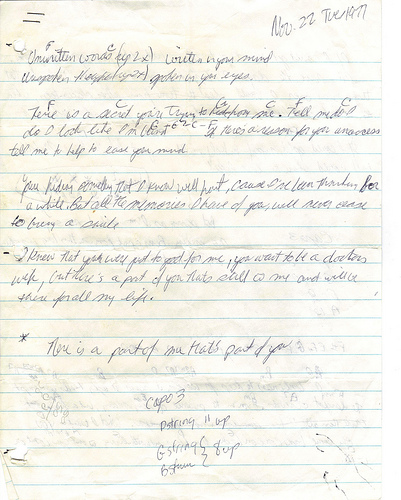 Nov. 22 Tues 1977
Unwritten words (rep 2x) written in your mind
Unspoken spoken in your eyes.
F C G F C
There is a secret you're trying to hide from me. Tell me do I
do I look like I'm There's a reason for you
tell me to help to ease your mind
You're hiding something that I know will hurt, cause I've been thinking for
a while. But all the memories I have of you, will never cease
to bring a smile
- I knew that you were just to good for me, you want to be a doctors
wife, but there's a part of you thats still in me and will be
there for all my life.
* There is a part of me that's part of you
Capo 3
D string 11 up
G string } 8 up
B string